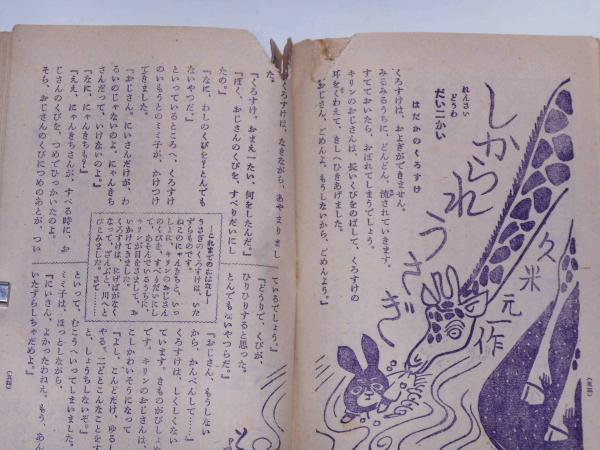 れんさい
どうわ
だい二かい
しかられうさぎ
久米元一作
はだかのくろすけ
くろすけは、およぎができません。
みるみるうちに、どんどん、流されていきます。
すてておいたら、おぼれてしまうでしょう。
キリンのおじさんは、長いくびをのばして、くろすけの
耳をくわえて、きしへひきあげました。
『おじさん、ごめんよ。もうしないから、ごめんよう。』
くろすけは、なきながら、あやまりまし
た。
『くろすけ。おまえ一たい、何をしたんだ。』
『ぼく、おじさんのくびを、すべりだいにし
たの。』
『なに、わしのくびを？とんでも
ないやつだ。』
といっているところへ、くろすけ
のいもうとのミミ子が、かけつけ
てきました。
『おじさん。にいさんだけが、わ
るいのじゃないのよ。にゃんきち
さんだって、いけないのよ。』
『なに、にゃんきちも？』
『ええ、にゃんきちさんが、すべる時に、お
じさんのくびを、つめでひっかいたのよ。
そら、おじさんのくびにつめのあとが、つい
―これまでのおはなし―
うさぎのくろすけは、いた
ずらものです。
ねこのにゃんきちと、いっ
しょに、キリンのおじさん
のくびを、すべりだいにし
て、あそんでいるうちに、
キリンが目をさまして、お
いかけてきました。
くろすけは、にげばがなく
なって、ざんぶと、川へと
びこみました。さて……
ているでしょう。』
『どうりで、くびが、
ひりひりすると思った。
とんでもないやつらだ。』
『おじさん、もうしない
から、かんべんして……』
くろすけは、しくしくない
ています。きものがびしょぬ
です。キリンのおじさんは、
こしかわいそうになって
『よし、こんどだけ、ゆるし
やる。二どとこんなことをす
と、しょうちしないぞ。』
といって、むこうへいってしまいました。
ミミ子は、ほっとしながら、
『にいさん、よかったわねえ。もう、あん
いたずらをしちゃだめよ。』